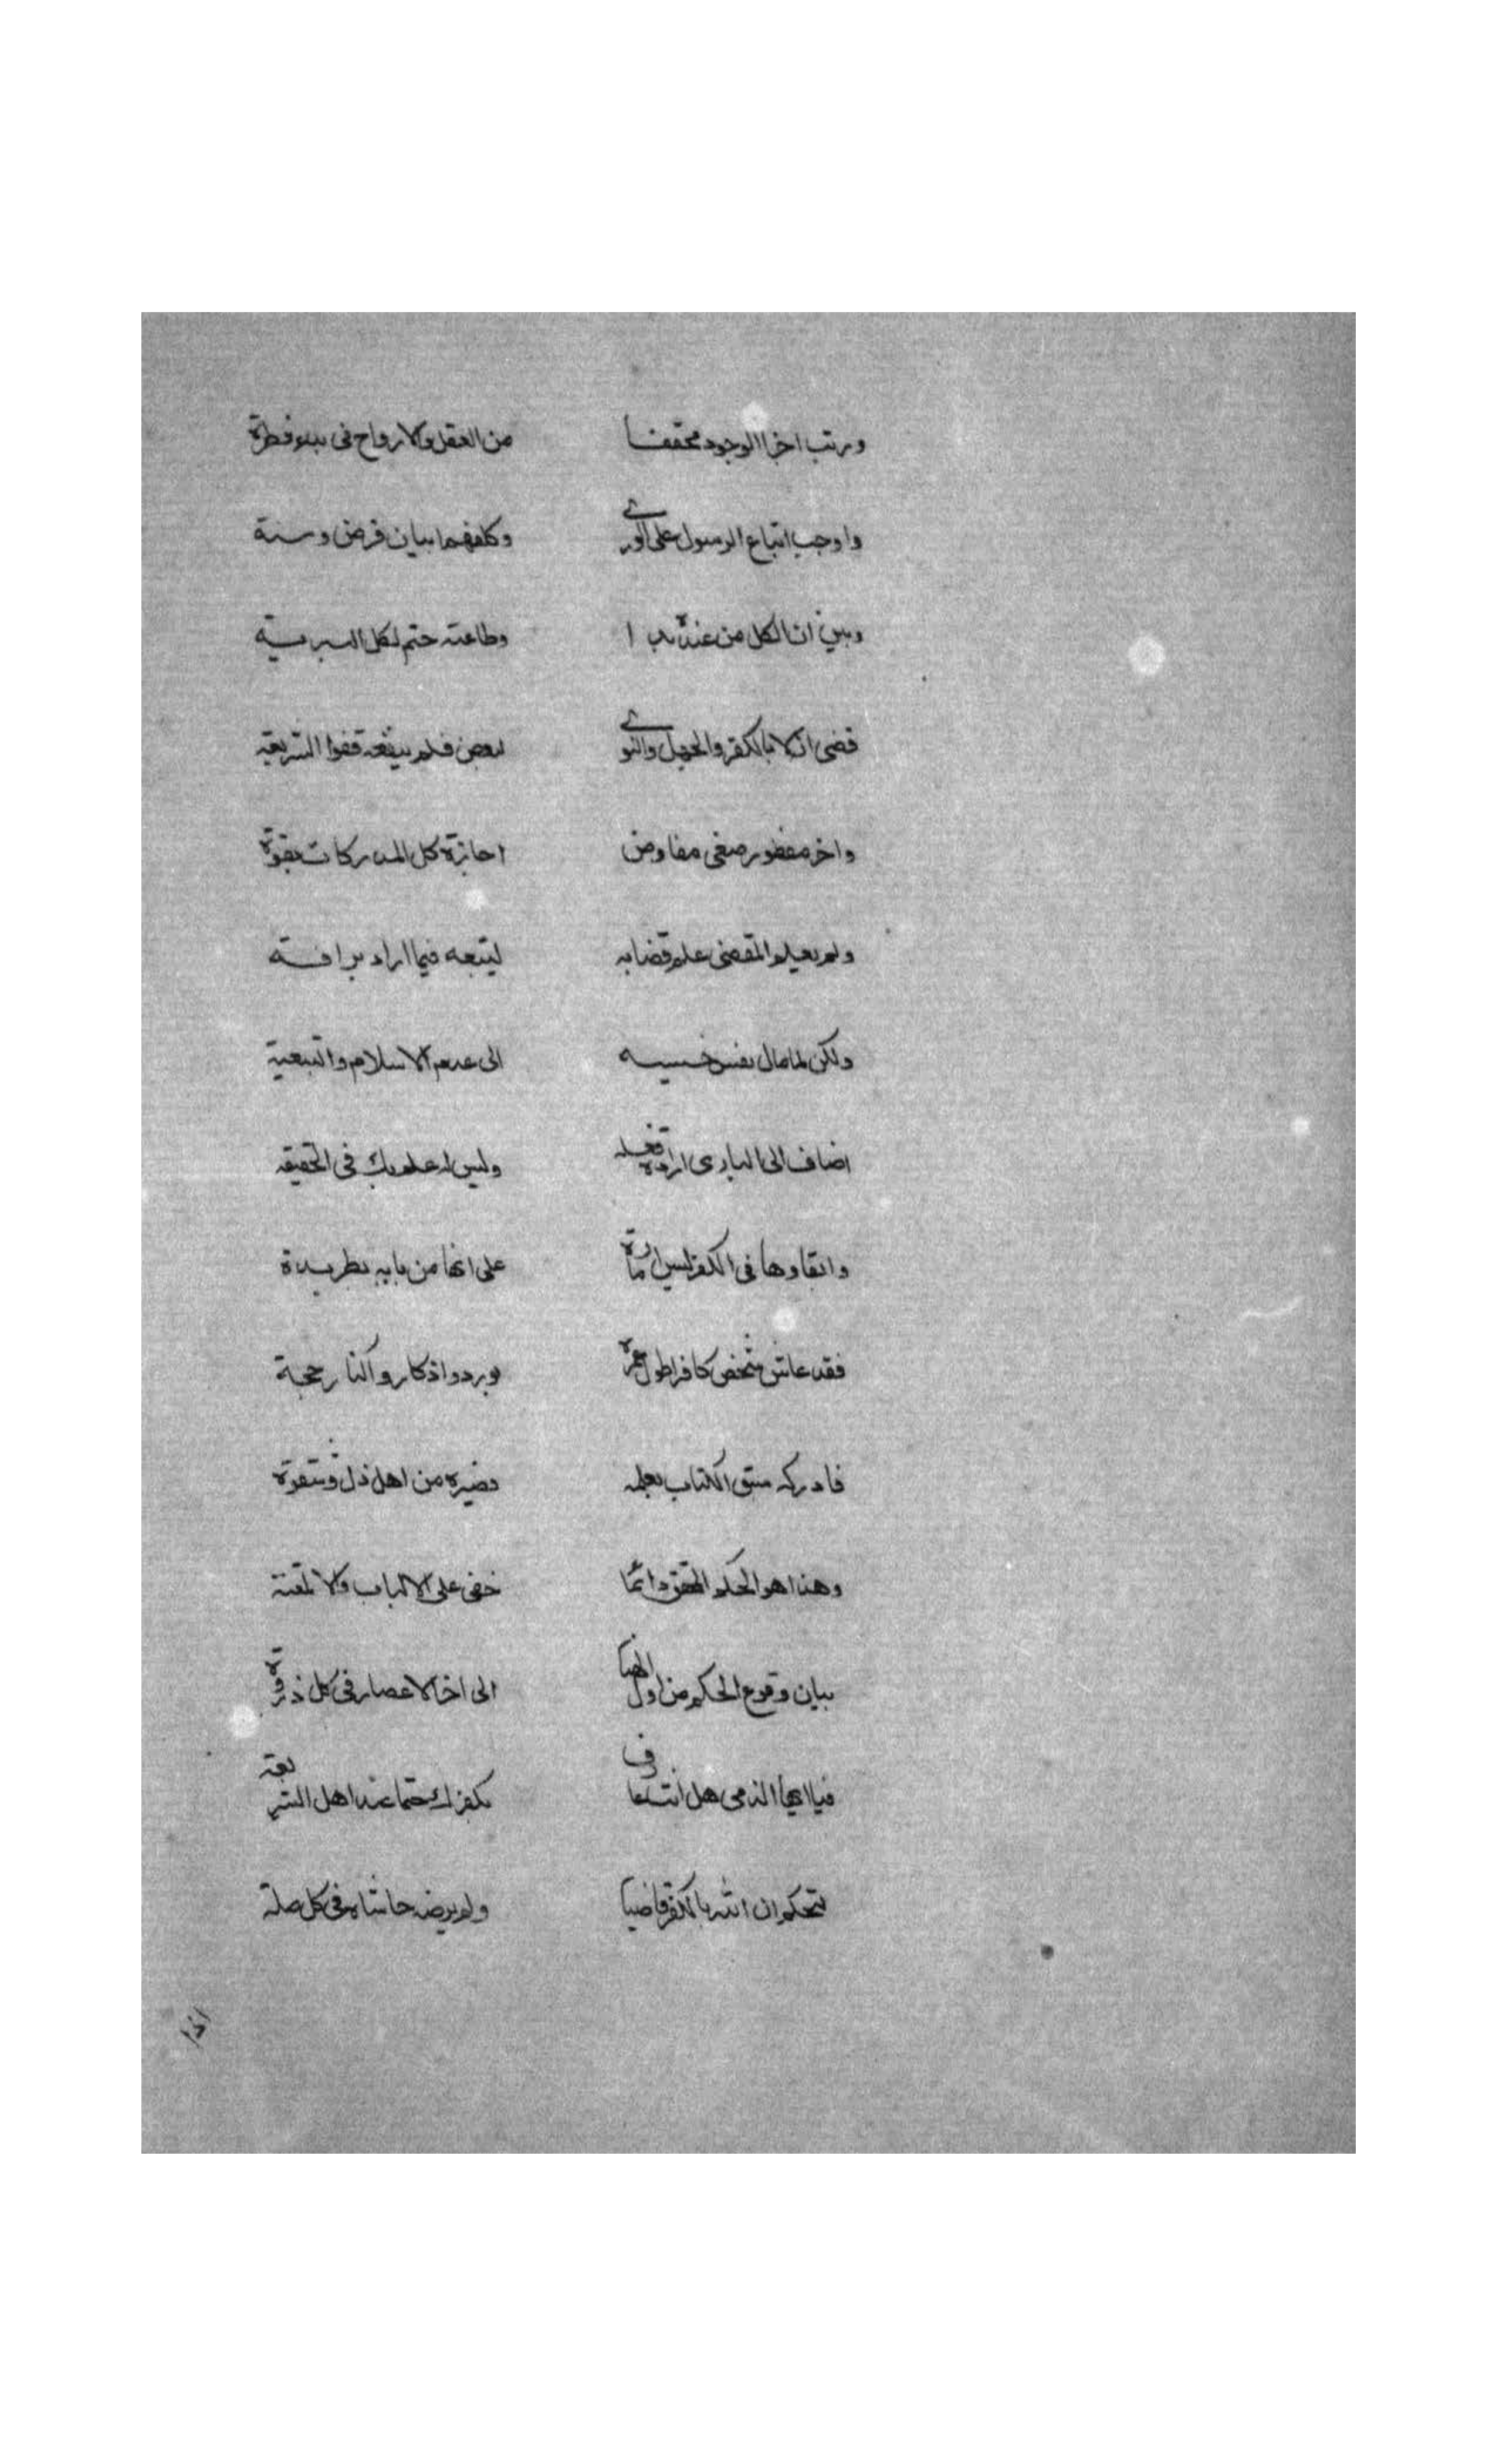 ورتب اخرا الوجود محققا من العقل والارواح فى بدء فطرة
واوجب اتباع الرسول على الورى وكلفهم ابيان فرض وسنة
وبين ان الكل من عند ربنا وطاعته حتم لكل البرية
قضى ازلا بالكفر والجهل والتوى لبعض فلم يتبعه قفوا الشريعة
واخر مفطور صفى مفاوض اجازة كل المدركات بقوة
ولم يعلم المقضى علم قضايه ليتبعه فيما اراد برافته
ولكن لما مال نفس خسيسه الى عدم الاسلام والتبعية
اضاف الى البارى ارادة فعله وليس له علم بذلك فى الحقيقه
وابقاوها فى الكفر ليس امارة على انها من بابه بطريدة
فقد عاش شخص كافرا طول عمره
فادركه سبق الكتاب بعلمه وصيره من اهل ذل وشقوة
وهذا هو الحكم المحقق دائما خفى على الالباب
بيان وقوع الحكم من اول الى اخر الاعصار فى كل ذروة
فيا ايها الذمى هل انت عارف بكفرك حتما عند اهل الشريعة
لتحكم ان الله بالكفر قاضيا ولم يرضه حاشاه فى كل ملة